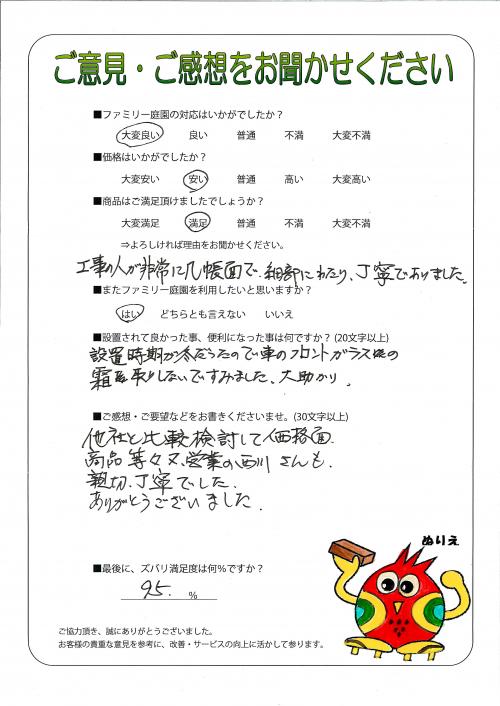 ご意見・ご感想をお聞かせください
■ファミリー庭園の対応はいかがでしたか？
大変良い 良い 普通 不満 大変不満
■価格はいかがでしたか？
大変安い 安い 普通 高い 大変高い
■商品はご満足頂けましたでしょうか？
大変満足 満足 普通 不満 大変不満
⇒よろしければ理由をお聞かせください。
工事の人が非常に几帳面で、細部にわたり、丁寧でありました。
■またファミリー庭園を利用したいと思いますか？
はい どちらとも言えない いいえ
■設置されて良かった事、便利になった事は何ですか？(20文字以上)
設置時期が冬だったので車のフロントガラスの
霜を取りしないですみました、大助かり。
■ご感想・ご要望などをお書きくださいませ。(30文字以上)
他社と比較検討して価格面、
商品等々又、営業の西川さんも、
親切、丁寧でした。
ありがとうございました。
ぬりえ
■最後に、ズバリ満足度は何％ですか？
95. ％
ご協力頂き、誠にありがとうございました。
お客様の貴重な意見を参考に、改善・サービスの向上に活かして参ります。